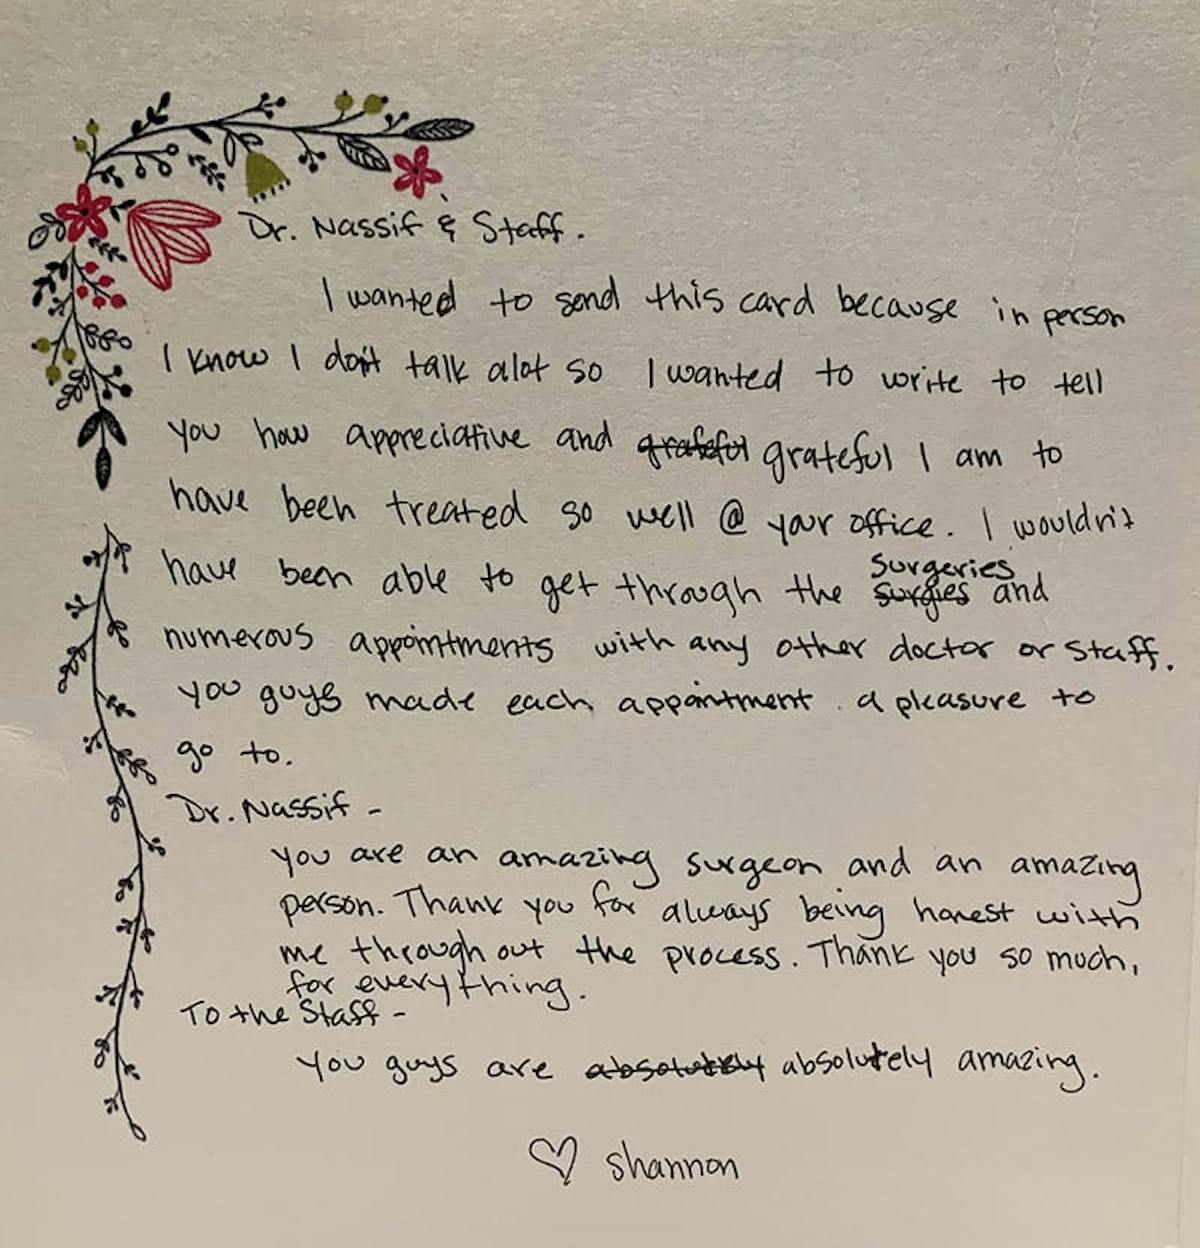 Dr. Nassif & Staff.
I wanted to send this card because in person
I know I don't talk alot so I wanted to write to tell
you how appreciative and grateful grateful I am to
have been treated so well @ your office. I wouldn't
have been able to get through the surgeries surgies and
numerous appointments with any other doctor or staff.
you guys made each appointment a pleasure to
go to.
Dr. Nassif -
you are an amazing surgeon and an amazing
person. Thank you for always being honest with
me through out the process. Thank you so much,
for everything.
To the Staff -
You guys are absolutely absolutely amazing.
♡ shannon